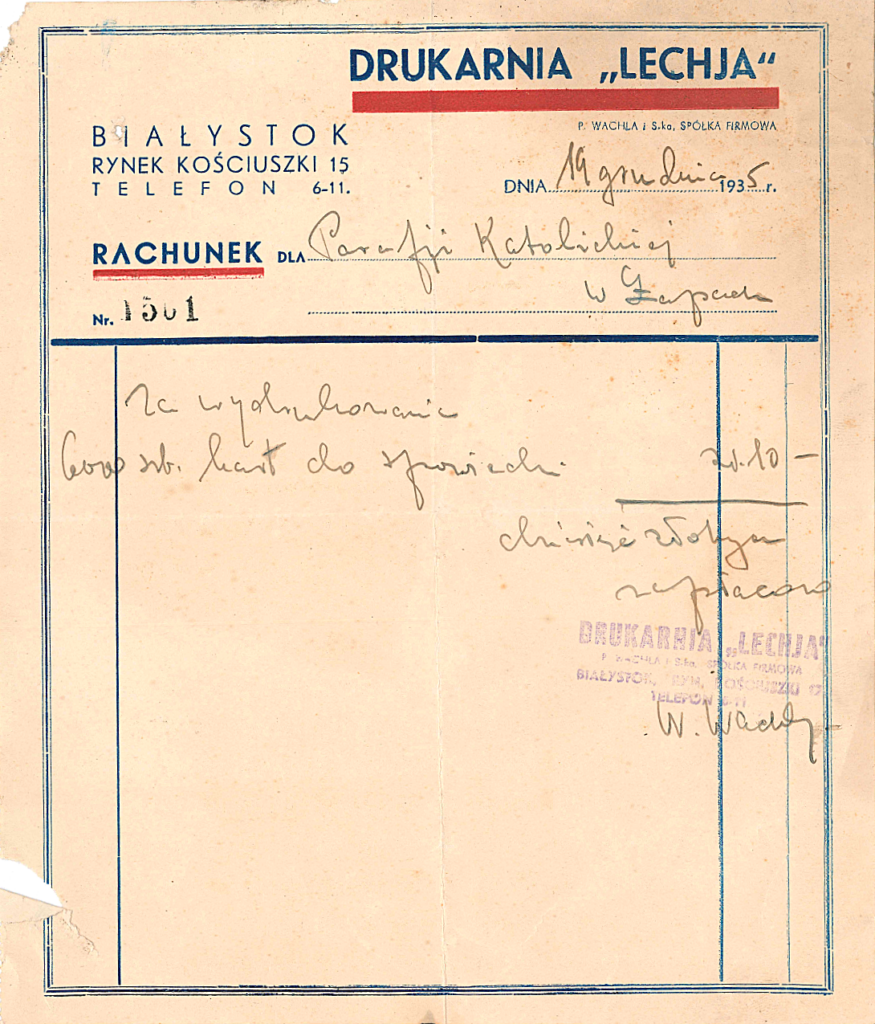 DRUKARNIA „LECHJA“
P. WACHLA i S-ka, SPÓŁKA FIRMOWA
BIAŁYSTOK
RYNEK KOŚCIUSZKI 15
TELEFON 6-11.
DNIA 19 grudnia 1935 r.
RACHUNEK DLA Parafji Katolickiej
w
Nr. 1501
Za wydrukowanie
6000 szt. kart do spowiedzi zł. 10 –
dziesięć złotych
zapłacono
DRUKARNIA „LECHJA“
P. WACHLA i S-ka, SPÓŁKA FIRMOWA
BIAŁYSTOK, RYN. KOŚCIUSZKI
TELEFON 6-11
W.